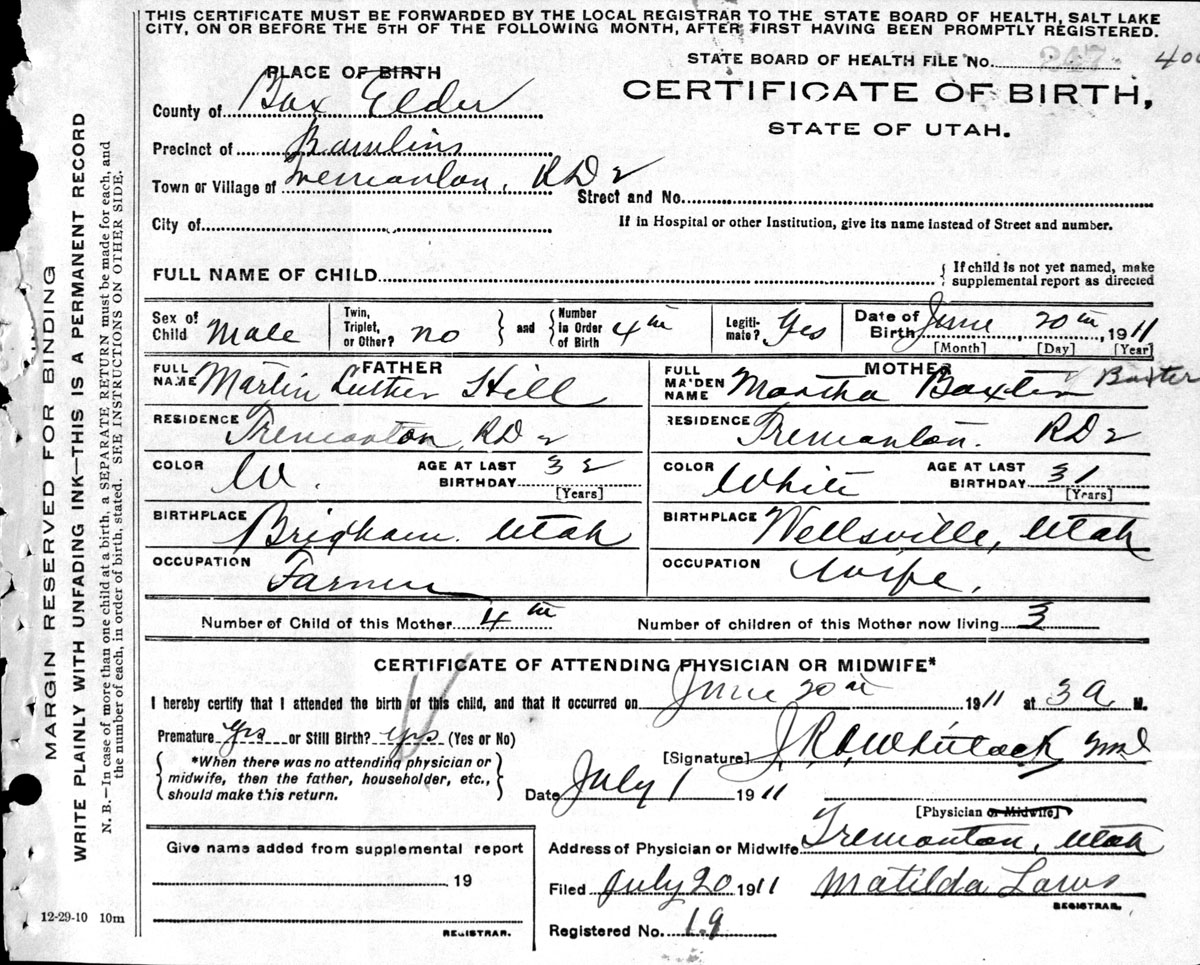 THIS CERTIFICATE MUST BE FORWARDED BY THE LOCAL REGISTRAR TO THE STATE BOARD OF HEALTH, SALT LAKE
CITY, ON OR BEFORE THE 5TH OF THE FOLLOWING MONTH, AFTER FIRST HAVING BEEN PROMPTLY REGISTERED.
STATE BOARD OF HEALTH FILE No. 267 400
PLACE OF BIRTH
CERTIFICATE OF BIRTH,
STATE OF UTAH.
County of Box Elder
Precinct of
Town or Village of Tremonton, RD 2
Street and No.
City of
If in Hospital or other Institution, give its name instead of Street and number.
FULL NAME OF CHILD
{ If child is not yet named, make
supplemental report as directed
Sex of Child Male
Twin, Triplet, or Other? no } and { Number in Order of Birth 4th
Legiti- mate? Yes
Date of Birth June 20th, 1911
[Month] [Day] [Year]
FATHER
FULL NAME Martin Luther Hill
MOTHER
FULL MAIDEN NAME Martha Baxter Baxter
RESIDENCE Tremonton, RD 2
RESIDENCE Tremonton. RD 2
COLOR W. AGE AT LAST BIRTHDAY 32 [Years]
COLOR White AGE AT LAST BIRTHDAY 31 [Years]
BIRTHPLACE Brigham. Utah
BIRTHPLACE Wellsville, Utah
OCCUPATION Farmer
OCCUPATION Wife.
Number of Child of this Mother 4th
Number of children of this Mother now living 3
CERTIFICATE OF ATTENDING PHYSICIAN OR MIDWIFE*
I hereby certify that I attended the birth of this child, and that it occurred on June 20th 1911 at 3 A M.
Premature Yes or Still Birth? yes (Yes or No)
[Signature]
{ *When there was no attending physician or
midwife, then the father, householder, etc.,
should make this return. }
Date July 1 1911
[Physician or Midwife]
Address of Physician or Midwife Tremonton, Utah
Give name added from supplemental report
19
Filed July 20 1911 Matilda Laws
REGISTRAR.
Registered No. 19
REGISTRAR.
12-29-10 10m
MARGIN RESERVED FOR BINDING
WRITE PLAINLY WITH UNFADING INK—THIS IS A PERMANENT RECORD
N. B.—In case of more than one child at a birth, a SEPARATE RETURN must be made for each, and
the number of each, in order of birth, stated. SEE INSTRUCTIONS ON OTHER SIDE.